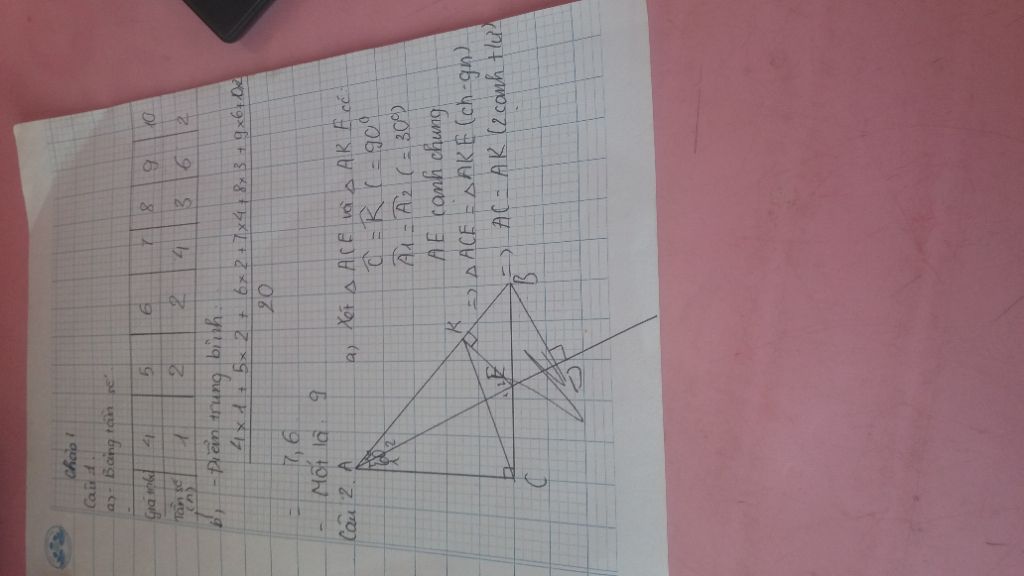 Câu 1.
a) - bảng tần số
Giá trị 4 5 6 7 8 9 10
Tần số (n) 1 2 2 4 3 6 2
b, - Điểm trung bình.
4x1 + 5x2 + 6x2 + 7x4 + 8x3 + 9x6 +
20
= 7,6
- Mốt là: 9
Câu 2.
a) Xét △ ACE và △ AKE có:
C = K (= 90°)
A1 = A2 (= 30°)
AE cạnh chung
=> △ ACE = △ AKE (ch-gn)
=> AC = AK (2 cạnh t/ư)
A
1 2
K
E
C
B
D